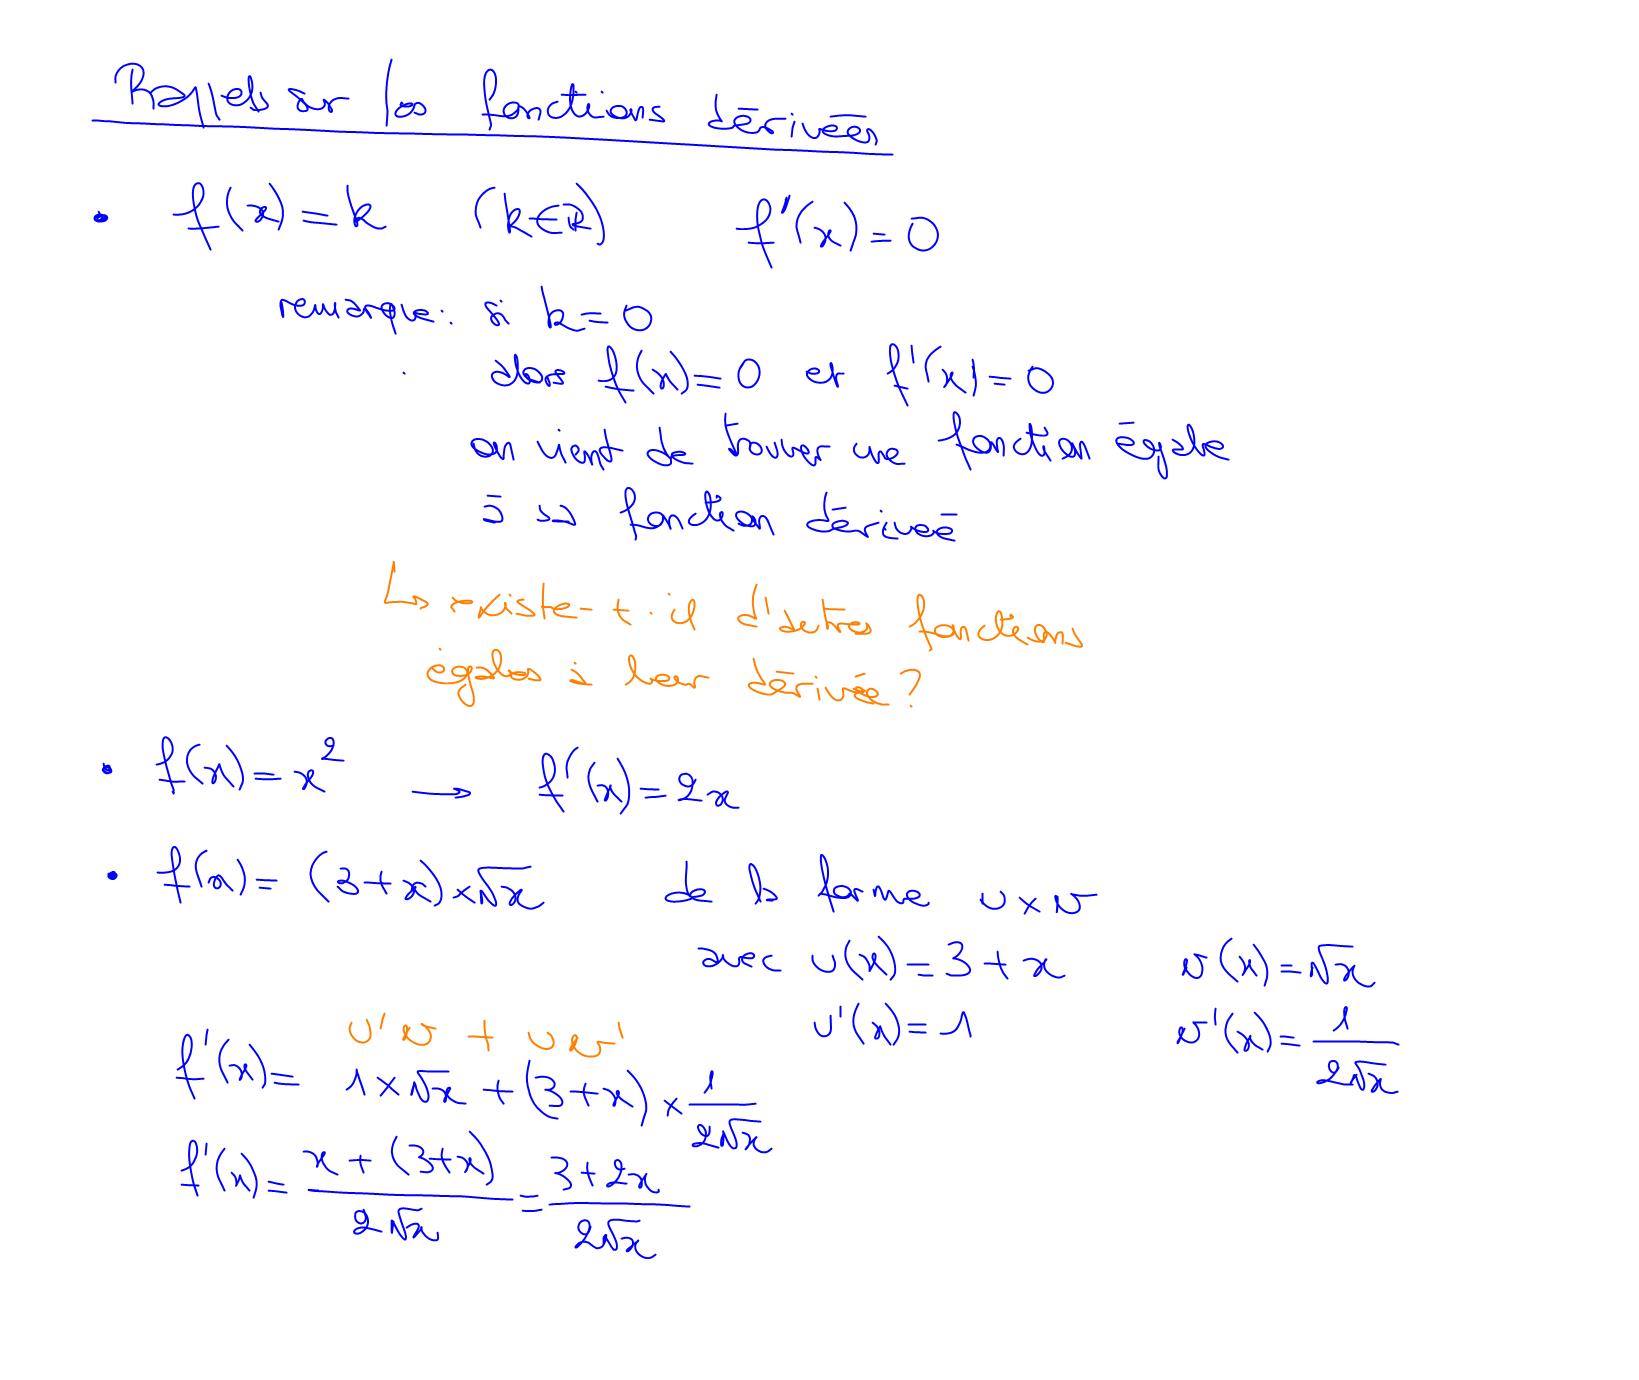 Rappels sur les fonctions dérivées
• f(x) = k (k∈ℝ) f'(x) = 0
remarque: si k = 0
alors f(x) = 0 et f'(x) = 0
on vient de trouver une fonction égale
à sa fonction dérivée
↳ existe-t-il d'autres fonctions
égales à leur dérivée ?
• f(x) = x² → f'(x) = 2x
• f(x) = (3+x)×√x de la forme u×v
avec u(x) = 3+x v(x) = √x
u'(x) = 1 v'(x) = 1/(2√x)
u'v + uv'
f'(x) = 1×√x + (3+x) × 1/(2√x)
f'(x) = (x + (3+x))/(2√x) = (3+2x)/(2√x)